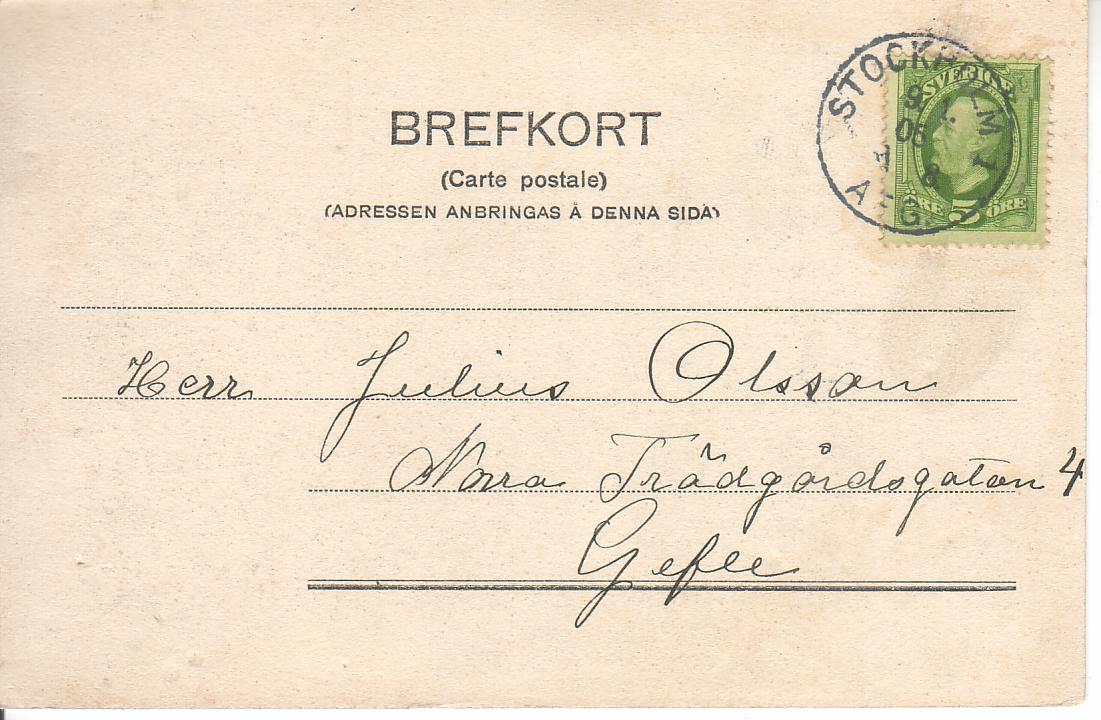 BREFKORT
(Carte postale)
(ADRESSEN ANBRINGAS Å DENNA SIDA)
STOCKHOLM 1
A F G.
SVERIGE
ÖRE 5 ÖRE
Herr Julius Olsson
Norra Trädgårdsgatan 4
Gefle